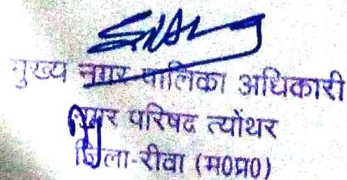 मुख्य नगर पालिका अधिकारी
नगर परिषद त्योंथर
जिला-रीवा (म0प्र0)